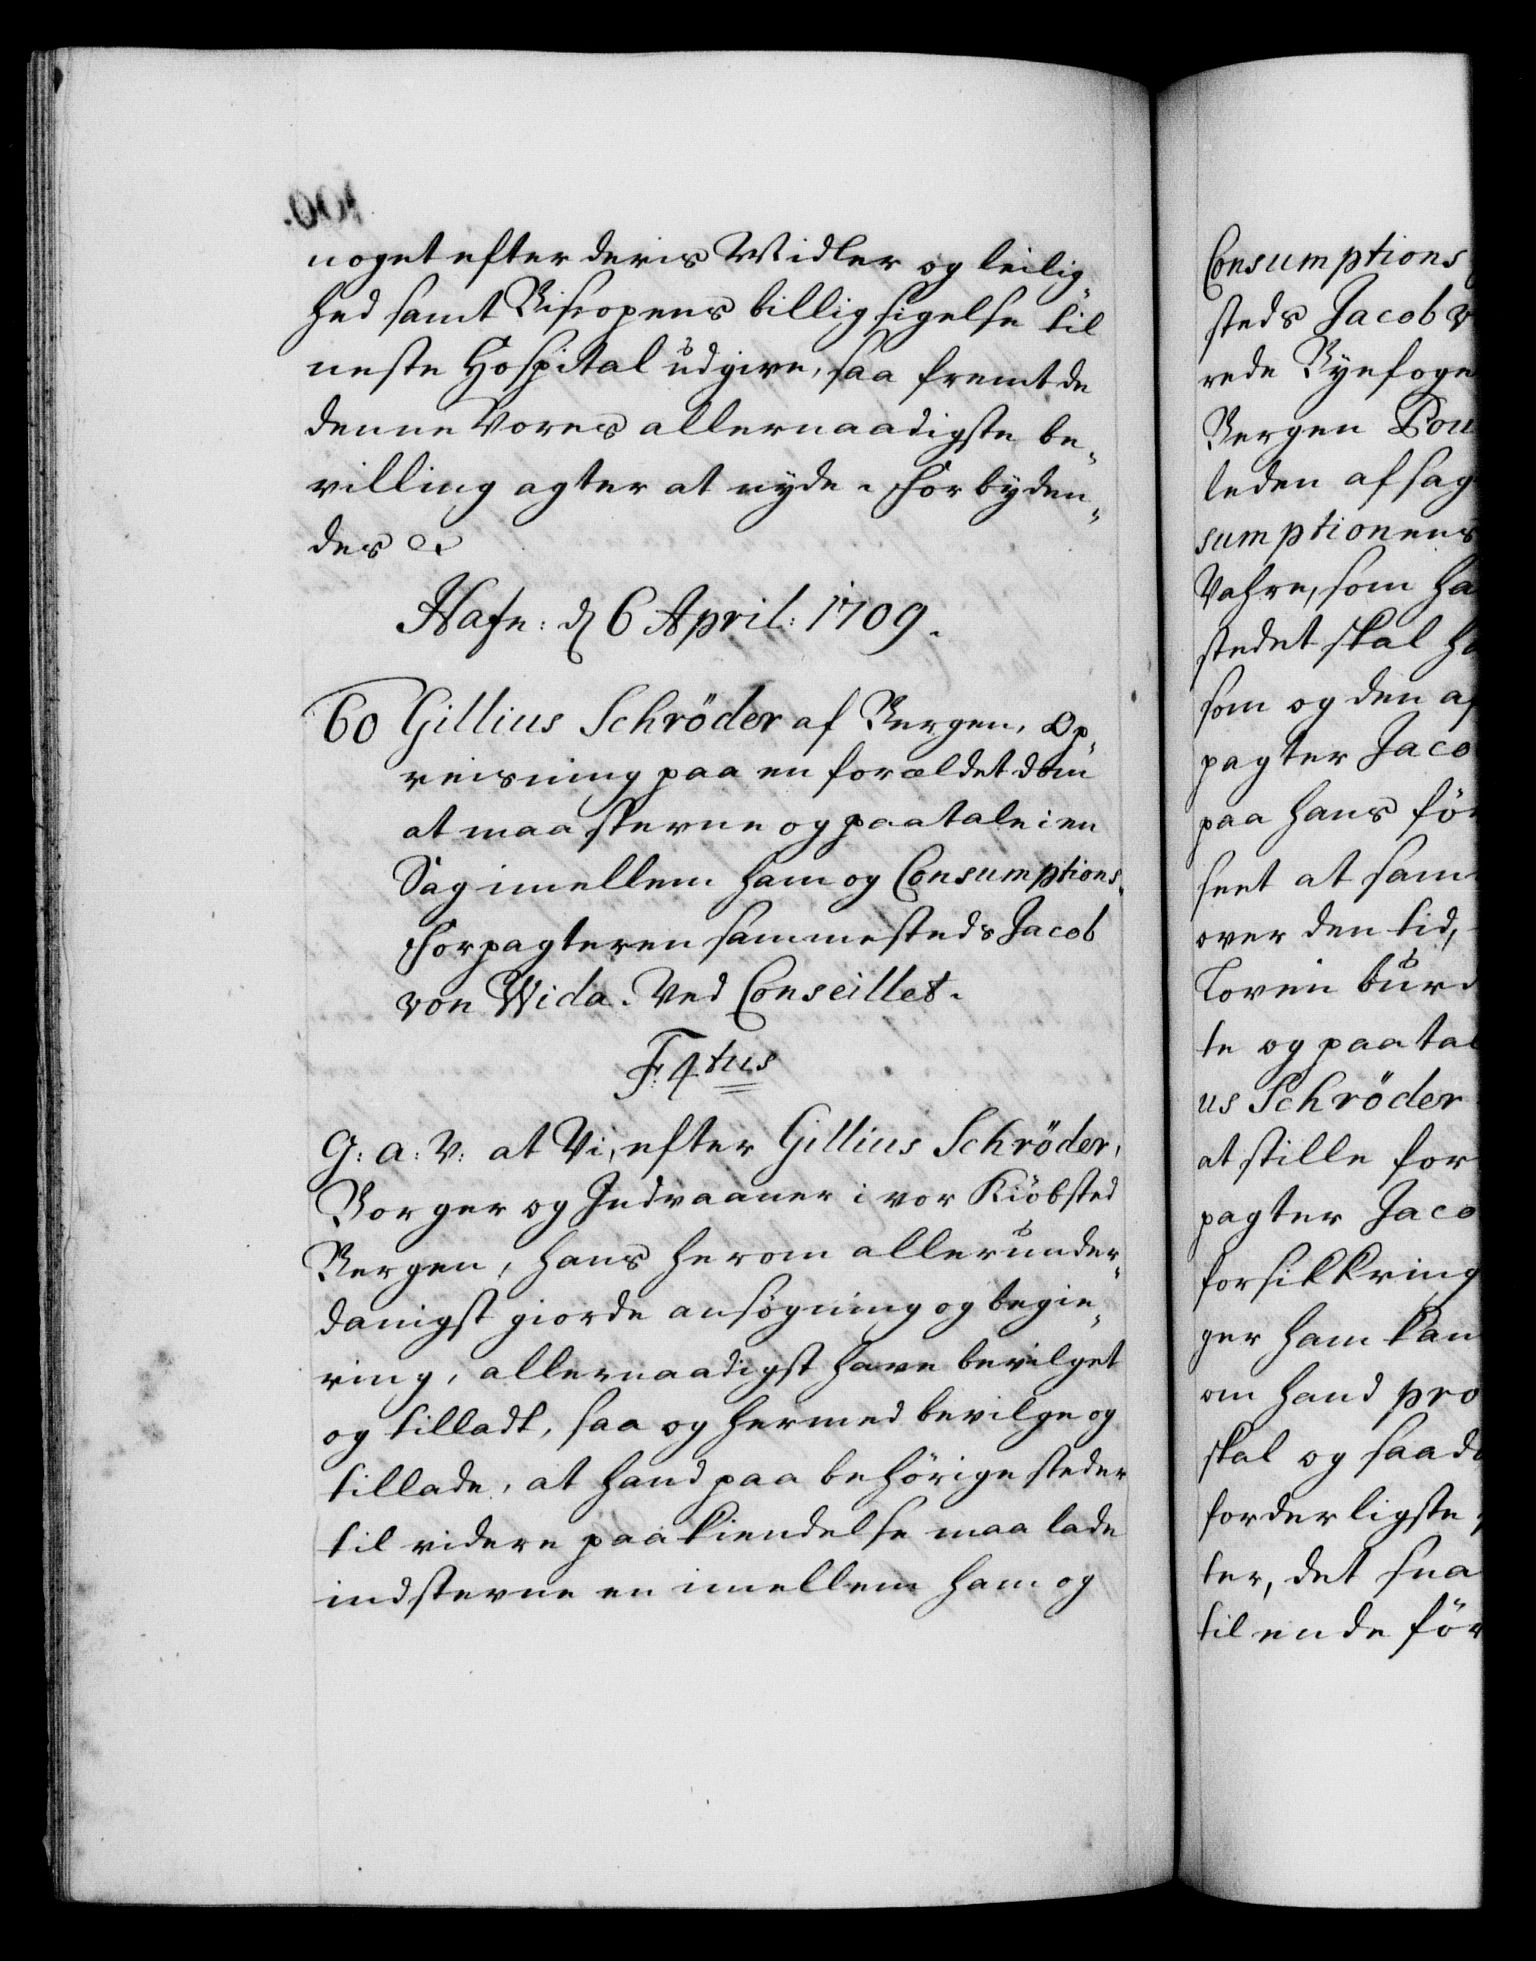 noget efter deris Midler og leilig„
hed samt Biscopens billig sigelse til
neste Hospital udgive, saa fremt de
denne Vores allernaadigste be„
villing agter at nyde. Forbyden„
des &
Hafn: d 6 April: 1709.
60 Gillius Schröder af Bergen, Op„
reisning paa en forældet dom
at maa stevne og paatale i en
Sag imellem ham og Consumptions„
Forpagteren sammesteds Jacob
von Wida. Ved Conseillet.
F: 4tus
G: a: V: at Vi, efter Gillius Schröder,
Borger og Indvaaner i vor Kiöbsted
Bergen, hans herom allerunder„
danigst giorde ansögning og begie„
ring, allernaadigst have bevilget
og tilladt, saa og hermed bevilge og
tillade, at hand paa behörige steder
til videre paakiendelse maa lade
indstevne en imellem ham og
Consumptions
steds Jacob v
rede Byefoge
Bergen Pou
leden afsag
sumptionens
Vahre, som ha
stedet skal ha
som og den af
pagter Jaco
paa hans för
seet at sam
over den tid,
Loven burd
te og paatal
us Schröder
at stille for
pagter Jaco
forsikkring
ger ham kan
om hand pro
skal og saad
forderligste
ter, det sna
til ende för